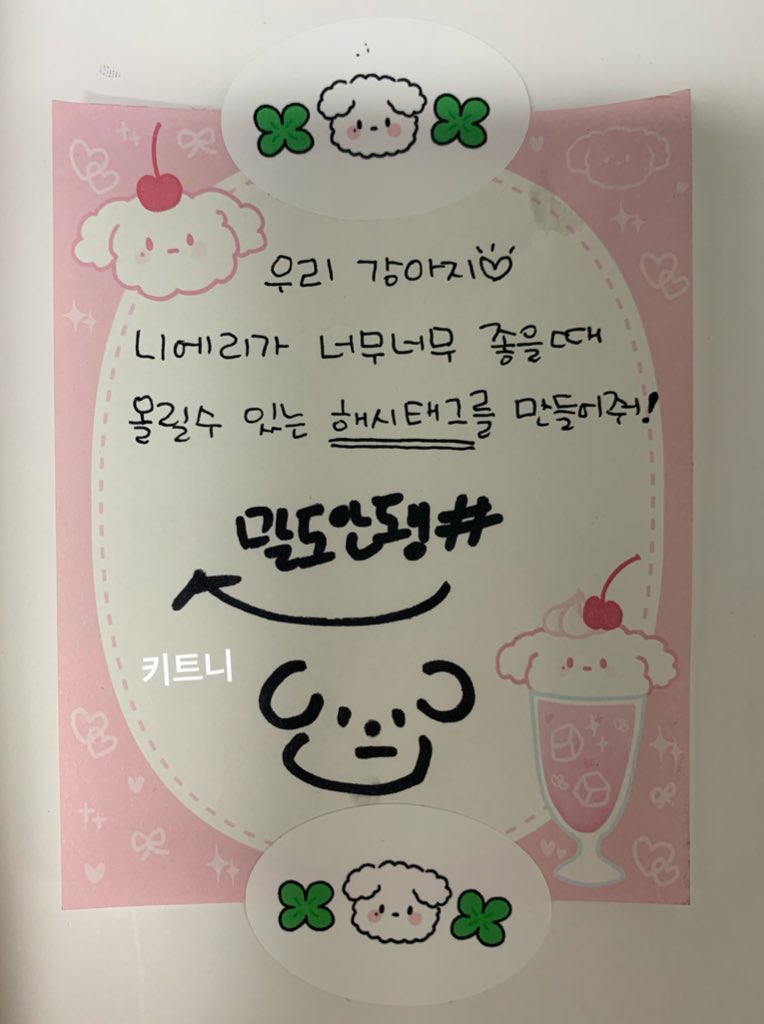 우리 강아지♡
니에리가 너무너무 좋을때
올릴수 있는 해시태그를 만들어줘!
말도안됑#
키트니